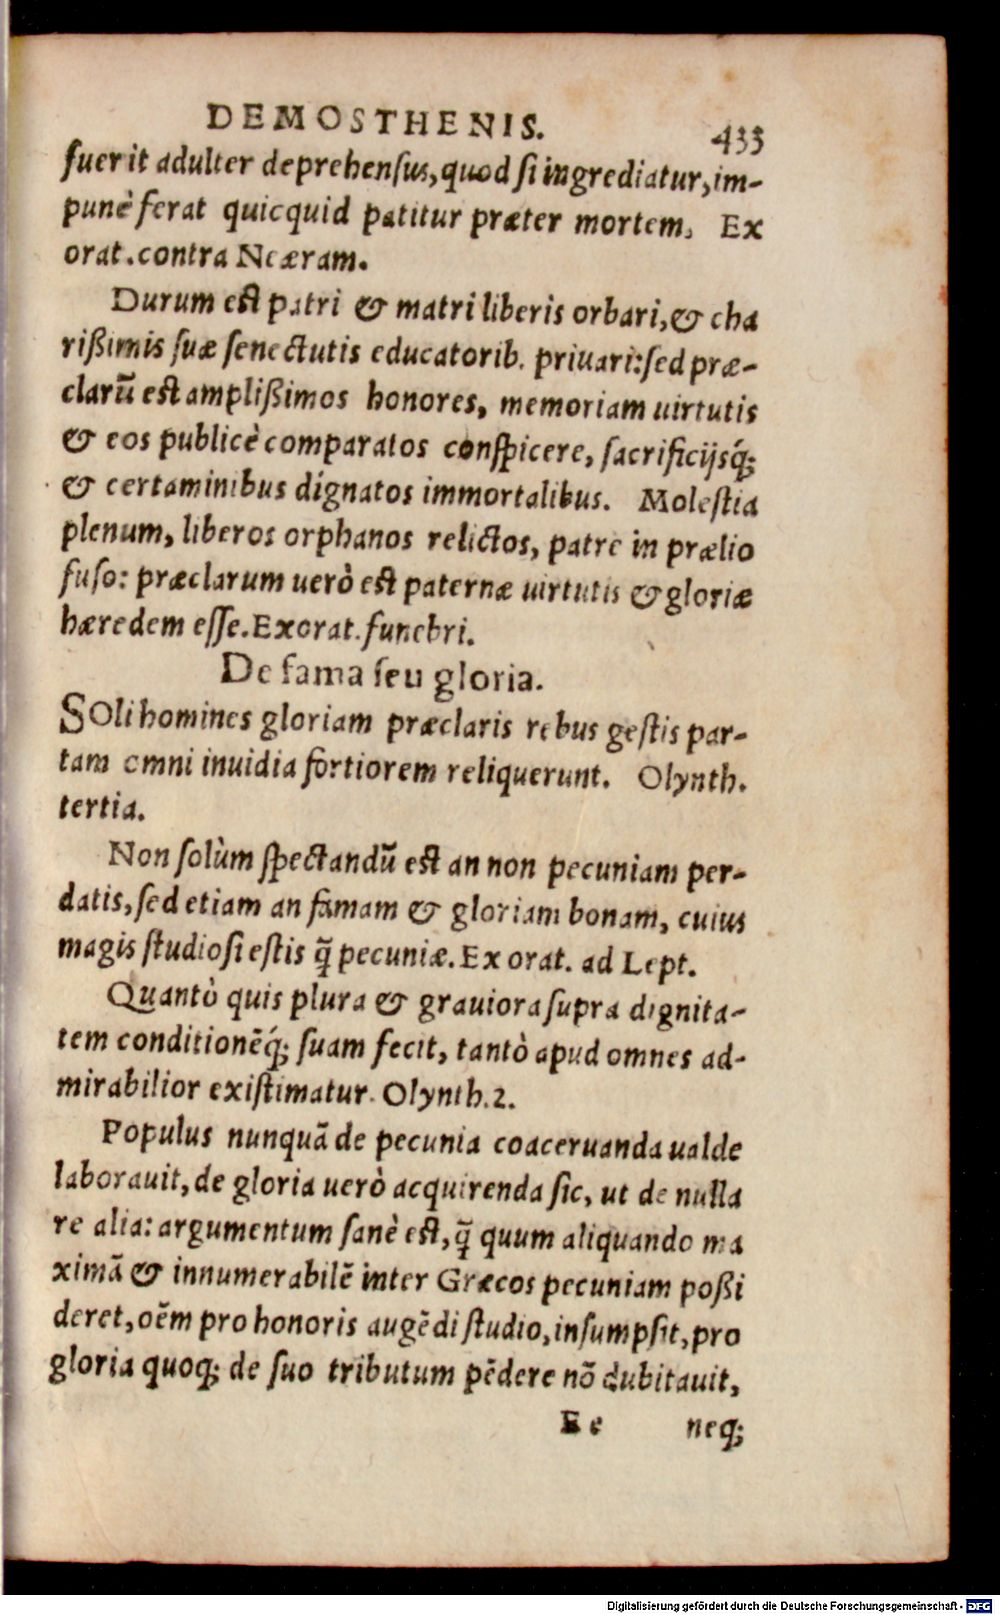 DEMOSTHENIS. 433
fuerit adulter deprehensus, quod si ingrediatur, im-
punè ferat quicquid patitur præter mortem. Ex
orat. contra Neæram.
Durum est patri & matri liberis orbari, & cha
rißimis suæ senectutis educatorib. priuari: sed præ-
clarū est amplißimos honores, memoriam uirtutis
& eos publicè comparatos conspicere, sacrificijsq́;
& certaminibus dignatos immortalibus. Molestia
plenum, liberos orphanos relictos, patre in prælio
fuso: præclarum uerò est paternæ uirtutis & gloriæ
hæredem esse. Ex orat. funebri.
De fama seu gloria.
SOli homines gloriam præclaris rebus gestis par-
tam omni inuidia fortiorem reliquerunt. Olynth.
tertia.
Non solùm spectandū est an non pecuniam per-
datis, sed etiam an famam & gloriam bonam, cuius
magis studiosi estis q̃ pecuniæ. Ex orat. ad Lept.
Quantò quis plura & grauiora supra dignita-
tem conditionēq́; suam fecit, tantò apud omnes ad-
mirabilior existimatur. Olynth. 2.
Populus nunquā de pecunia coaceruanda ualde
laborauit, de gloria uerò acquirenda sic, ut de nulla
re alia: argumentum sanè est, q̃ quum aliquando ma
ximā & innumerabilē inter Græcos pecuniam poßi
deret, oēm pro honoris augēdi studio, insumpsit, pro
gloria quoq; de suo tributum pēdere nō dubitauit,
Ee neq;
Digitalisierung gefördert durch die Deutsche Forschungsgemeinschaft - DFG